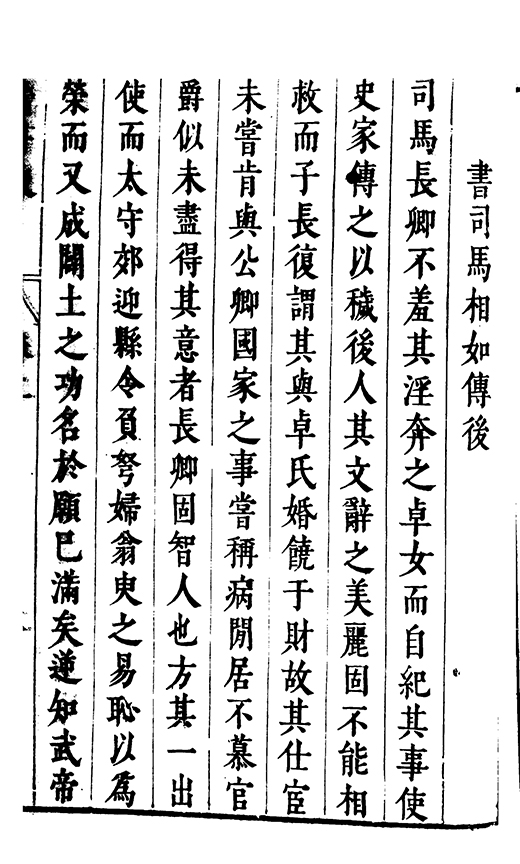 書司馬相如傳後
司馬長卿不羞其淫奔之卓女而自紀其事使
史家傳之以穢後人其文辭之美麗固不能相
救而子長復謂其與卓氏婚饒于財故其仕宦
未嘗肯與公卿國家之事嘗稱病閒居不慕官
爵似未盡得其意者長卿固智人也方其一出
使而太守郊迎縣令負弩婦翁臾之易恥以爲
榮而又成闢土之功名於願已滿矣逆知武帝